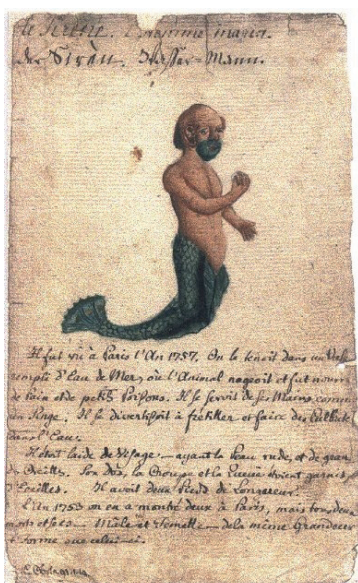 L'homme marin.
Wasser-Mann.
Il fut vû à Paris l'An 1757. On le tenoit dans un
rempli d'Eau de Mer, où l'Animal nageoit et fut nourri
de Pain et de petits Poissons. Il se servit de ses Mains comme
un Singe. Il se divertissoit à frétiller et faire des
dans l'Eau.
Il étoit laide de Visage — ayant la Peau rude, et de
Oreilles. Son dos, la et la Queüe étoient garnis
d'Ecailles. Il avoit deux Pieds de Longueur.
L'An 1758 on en a montré deux à Paris, mais tous deux
morts et secs — Mâle et Femelle — de la même Grandeur
et forme que celui-ci.